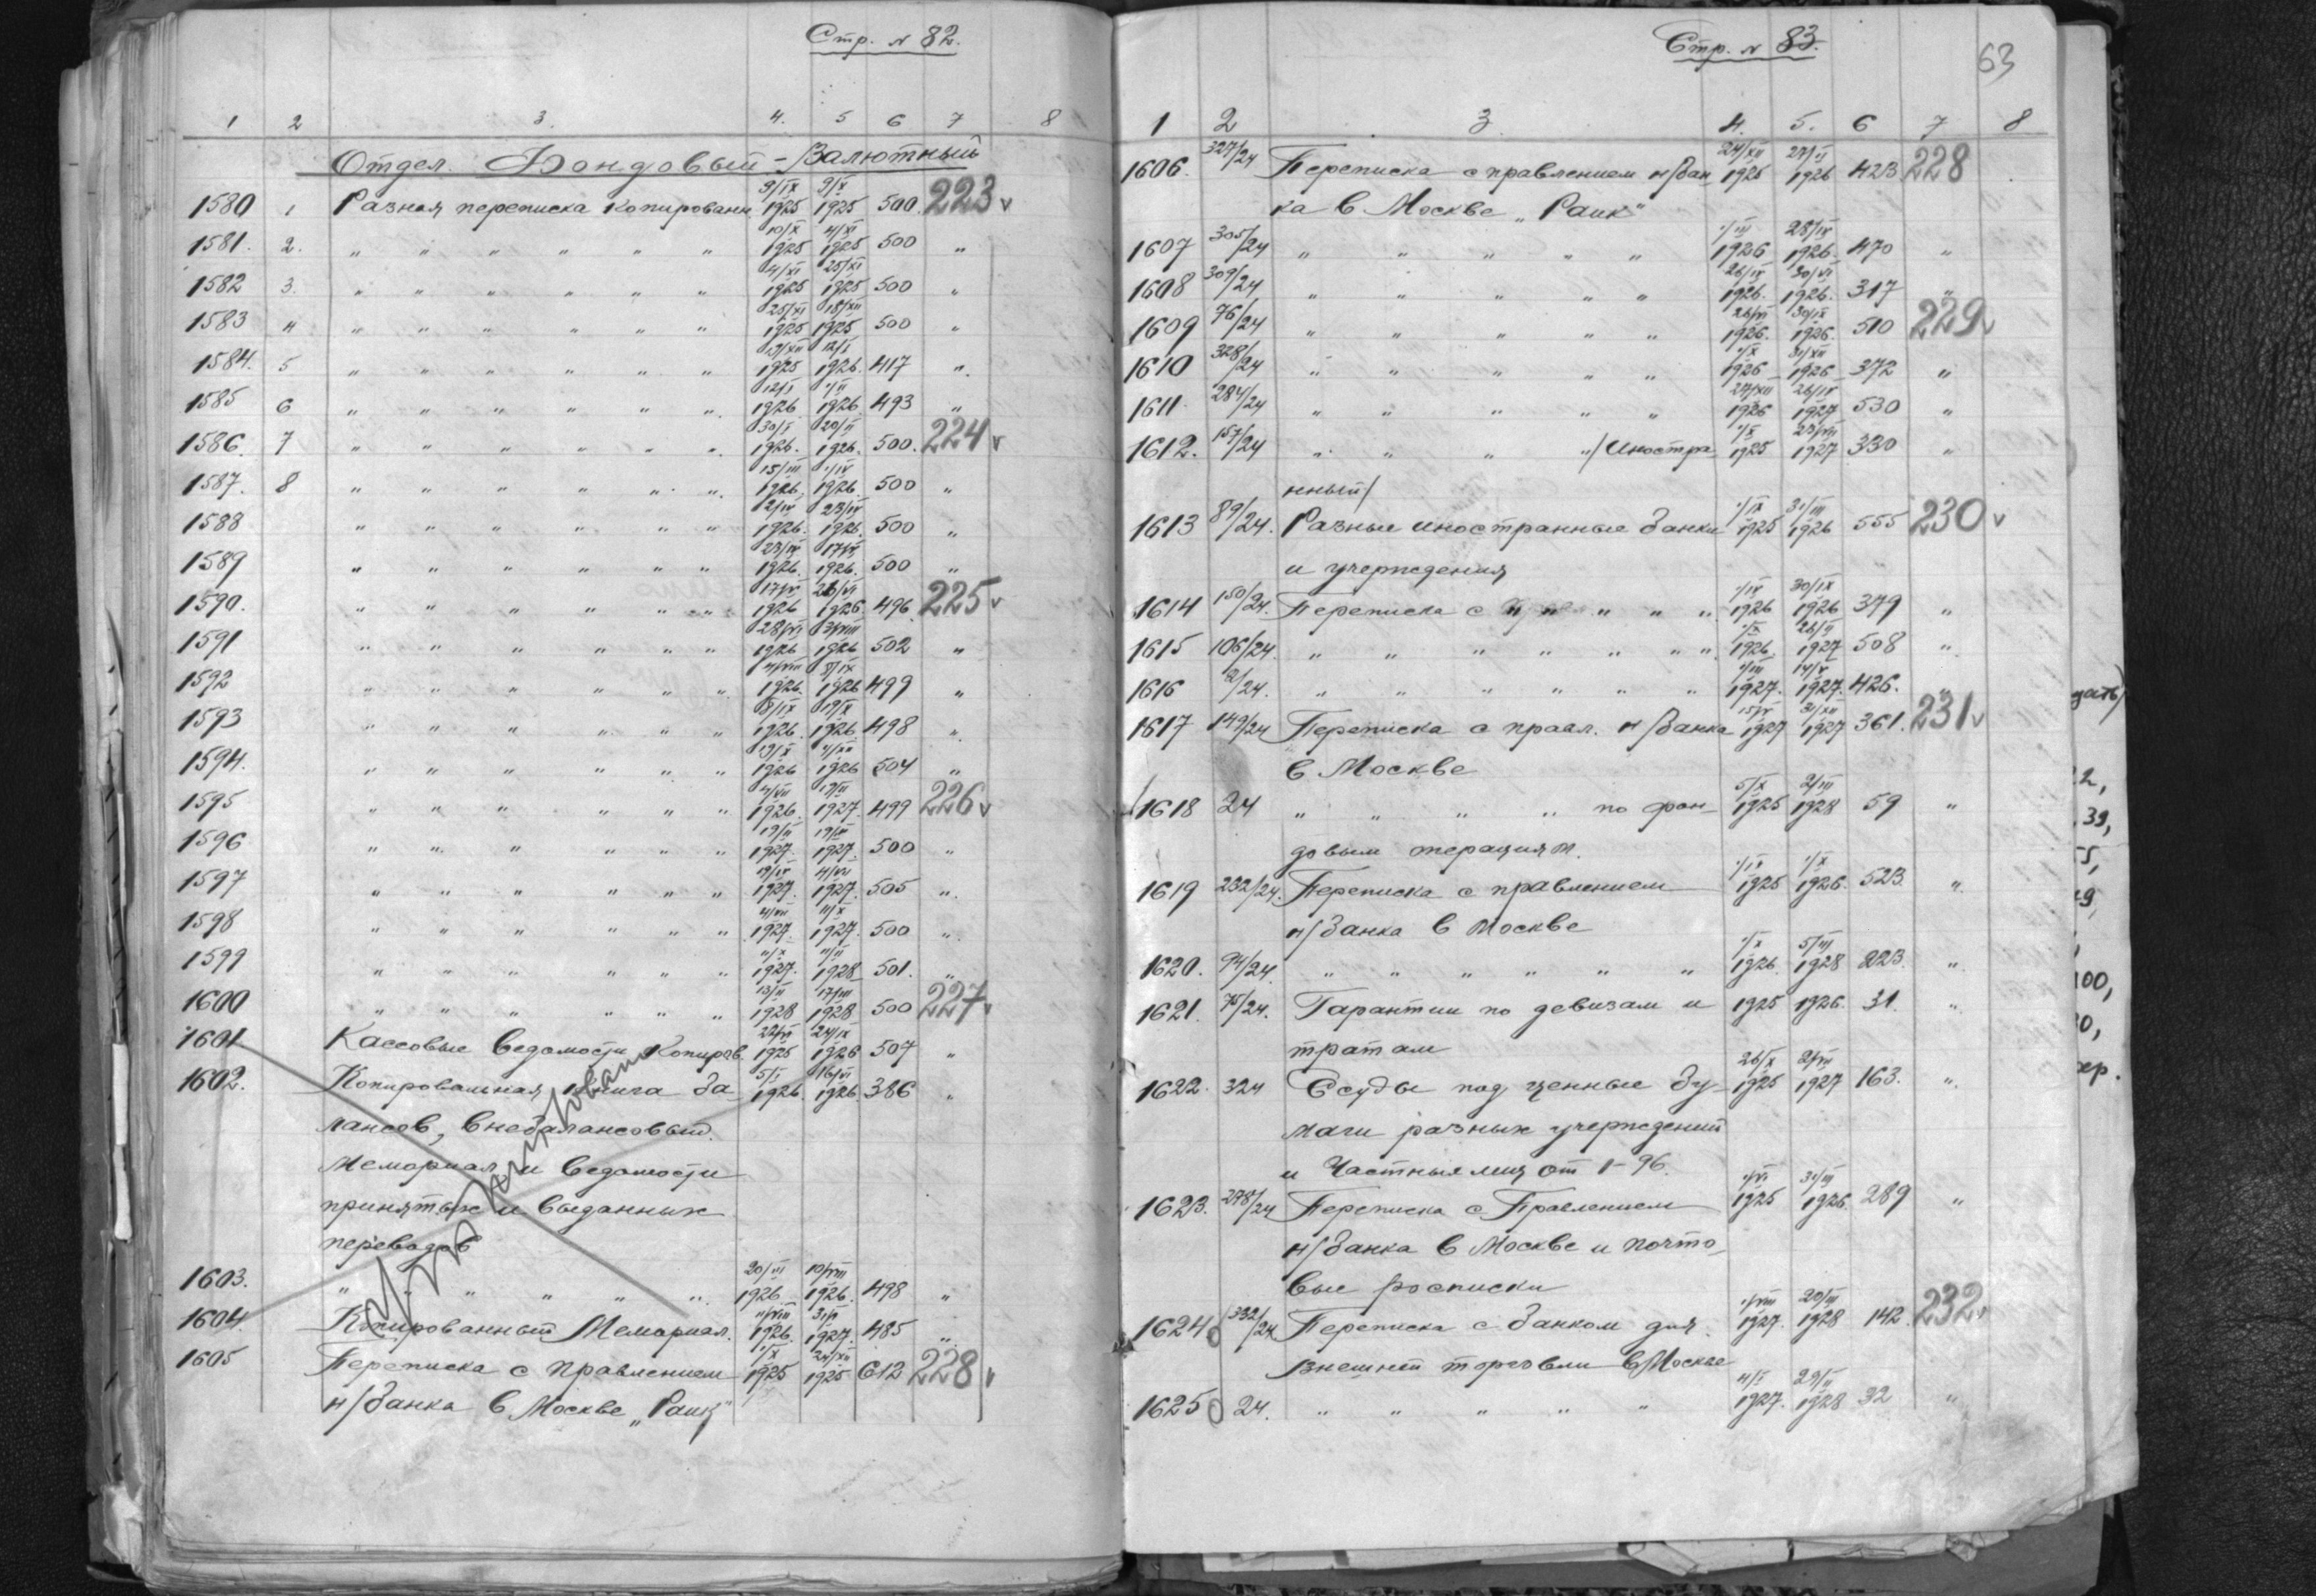 Стр. № 82.
1 2 3. 4. 5 6 7 8
Отдел. Фондовый - Валютный
1580 1 Разная переписка копированн 9/IX 1925 9/X 1925 500. 223 v
1581. 2. " " " " " " 10/X 1925 4/XI 1925 500 "
1582 3. " " " " " " 4/XI 1925 25/XI 1925 500 "
1583 4 " " " " " " 25/XI 1925 18/XII 1925 500 "
1584. 5 " " " " " " 1925 12/I 1926. 417 "
1585 6 " " " " " " 12/I 1926. 1926. 493 "
1586. 7 " " " " " " 30/I 1926. 20/II 1926. 500. 224 v
1587. 8 " " " " " " 15/III 1926. 1/IV 1926. 500 "
1588 " " " " " " 2/IV 1926. 23/IV 1926. 500 "
1589 " " " " " " 23/IV 1926. 1926. 500 "
1590. " " " " " " 1926 1926 496. 225 v
1591 " " " " " " 28/VI 1926 1926 502 "
1592 " " " " " " 1926. 8/IX 1926 499 "
1593 " " " " " " 8/IX 1926. 19/X 1926. 498 "
1594. " " " " " " 19/X 1926 1926 504 "
1595 " " " " " " 1926. 19/II 1927. 499 226 v
1596 " " " " " " 19/II 1927. 1927. 500 "
1597 " " " " " " 1927. 1927. 505 "
1598 " " " " " " 1927. 11/X 1927. 500 "
1599 " " " " " " 11/X 1927. 11/II 1928 501. "
1600 " " " " " " 13/II 1928 17/III 1928 500 227 v
1601 Кассовые ведомости копиров. 1925 24/IX 1926 507 "
1602. Копировальная книга ба- 5/I 1926. 16/VI 1926. 386 "
лансов, внебалансовый.
Мемориал и ведомости
принятых и выданных
переводов
1603. " " " " " " 20/VI 1926 10/VIII 1926. 498 "
1604. Копированный Мемориал. 11/VIII 1926. 1927. 485 "
1605 Переписка с правлением 1/X 1925 24/XII 1925 612 228 v
н/банка в Москве "Раик"
Стр. № 83.
63
1 2 3 4. 5. 6 7 8
1606. 327/24 Переписка с правлением н/бан- 24/XII 1925 27/II 1926 423 228
ка в Москве "Раик"
1607 305/24 " " " " " 1/III 1926 28/IV 1926. 470 "
1608 309/24 " " " " " 28/IV 1926. 30/VI 1926. 317 "
1609 76/24 " " " " " 1926. 30/IX 1926. 510 229 v
1610 328/24 " " " " " 1/X 1926 31/XII 1926 372 "
1611. 284/24 " " " " " 27/XII 1926 26/IV 1927 530 "
1612. 157/24 " " " " /Иностра 1/X 1925 1927 330 "
нный/
1613 89/24. Разные иностранные банки 1/IX 1925 31/III 1926 555 230 v
и учреждения
1614 150/24. Переписка с " " " " " 1/IV 1926 30/IX 1926 379 "
1615 106/24. " " " " " " " 1/X 1926. 26/II 1927 508 "
1616 2/24. " " " " " " 1/III 1927. 14/V 1927. 426. "
1617 149/24 Переписка с правл. н/банка 1927 31/XII 1927 361. 231 v
в Москве
1618 24 " " " " по фон- 5/X 1925 2/III 1928 59 "
довым операциям.
1619 232/24. Переписка с правлением 1/IX 1925 1/X 1926. 523. "
н/банка в Москве
1620. 94/24. " " " " " " 1/X 1926. 5/III 1928 223. "
1621. 75/24. Гарантии по девизам и 1925 1926. 31. "
тратам
1622. 324 Ссуды под ценные бу- 26/X 1925 1927 163. "
маги разных учреждений
и Частныя лиц от 1-96.
1623. 278/24 Переписка с Правлением 1925 31/III 1926. 289 "
н/банка в Москве и почто-
вые росписки
1624 332/24 Переписка с банком для 1/VIII 1927. 20/III 1928 142. 232 v
внешней торговли в Москве
1625 24. " " " " " 1927. 29/II 1928 32 "